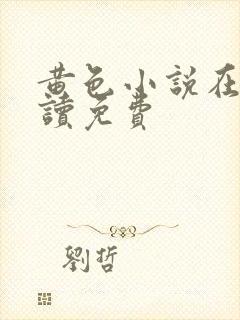 黄色小説在
讀免費
劉哲